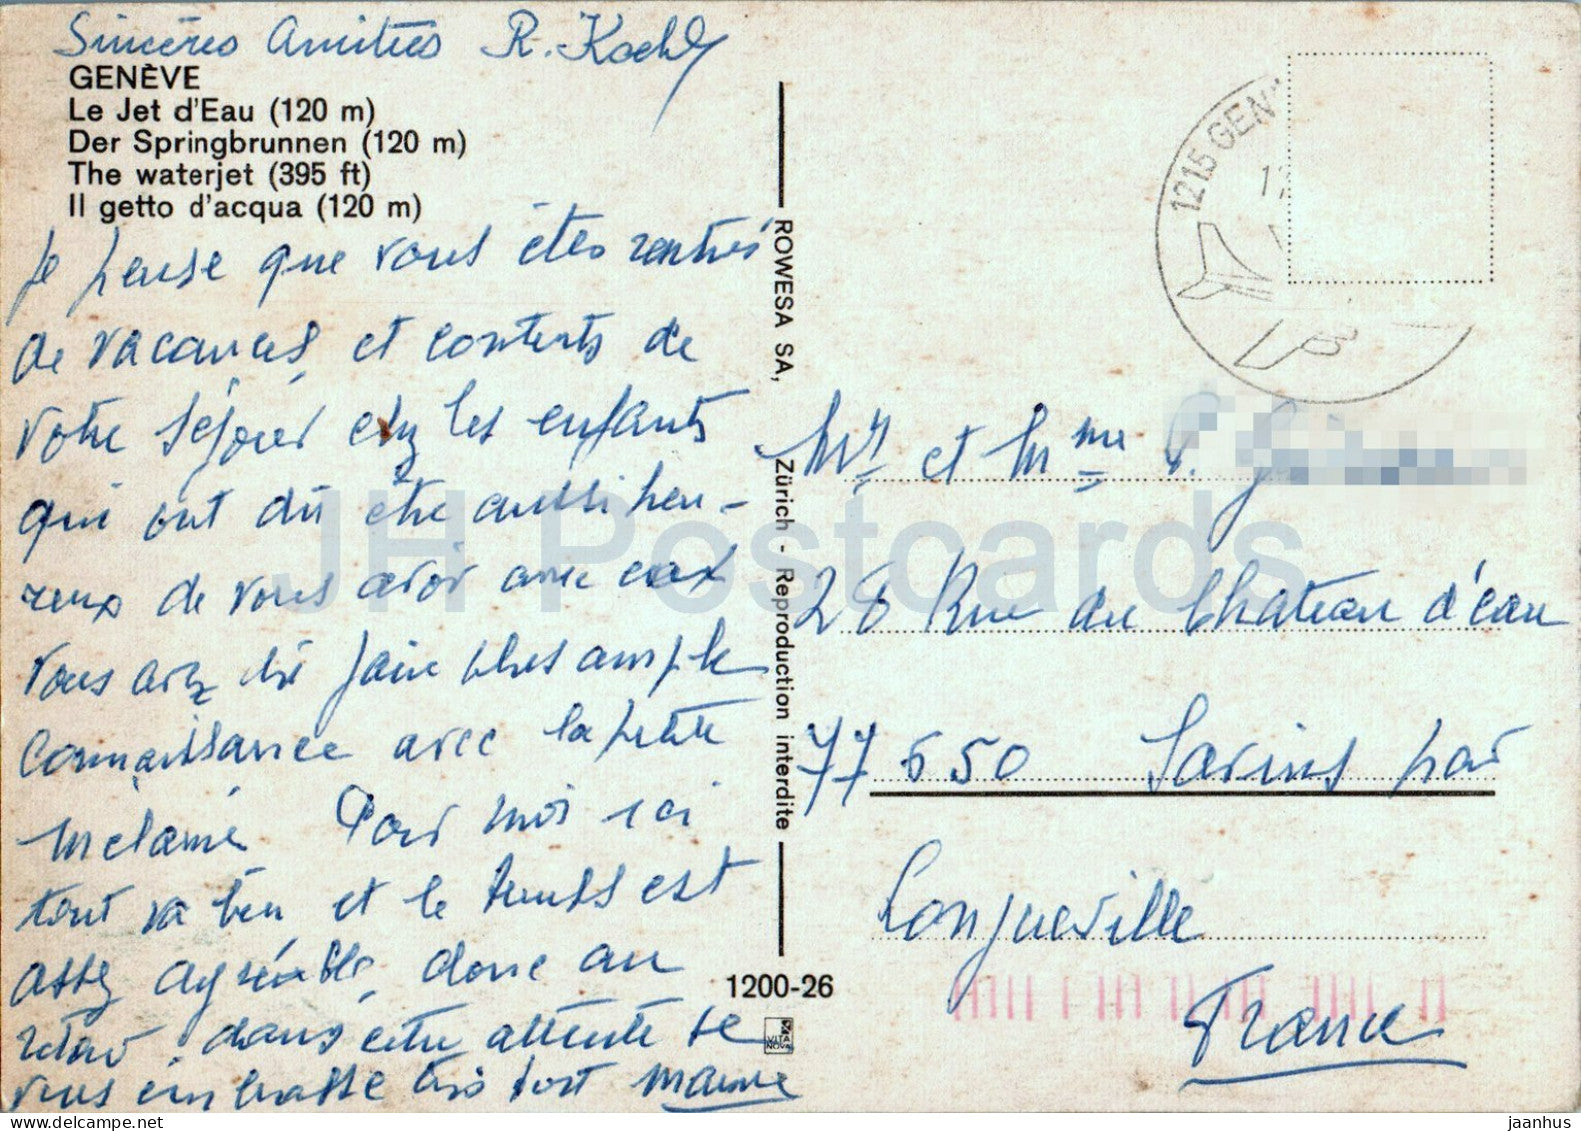 Sincères Amitiés R. Koehl
GENÈVE
Le Jet d'Eau (120 m)
Der Springbrunnen (120 m)
The waterjet (395 ft)
Il getto d'acqua (120 m)
Je pense que vous êtes rentrés
de vacances, et contents de
votre séjour chez les enfants
qui ont dû être aussi heu-
reux de vous avoir avec eux
vous avez dû faire plus ample
connaissance avec la petite
Mélanie Pour moi ici
tout va bien et le temps est
assez agréable, donc au
retour, dans cette attente je
vous embrasse très fort Mamie
ROWESA SA, Zürich - Reproduction interdite
1200-26
VITA NOVA
1215 GEN
Mr et Mme P.
28 Rue du Chateau d'éau
77 650 Savins par
Longueville
France
JH Postcards
jaanhus